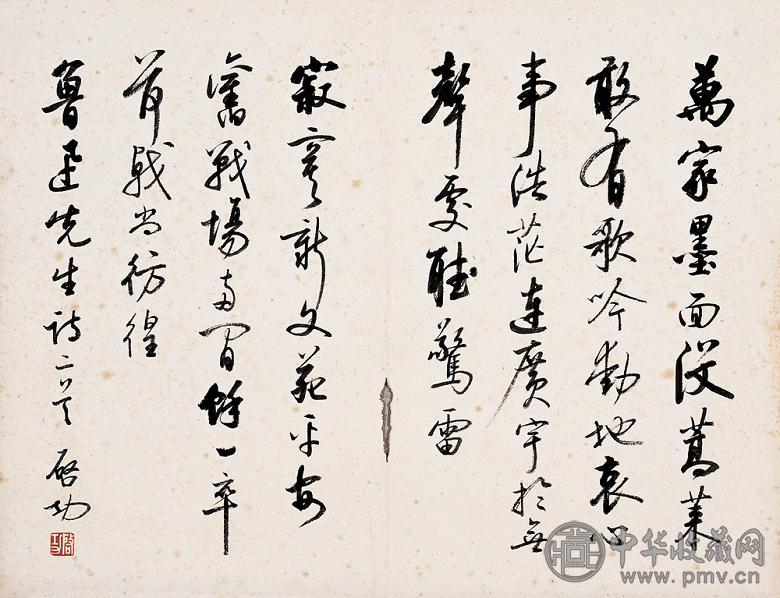 萬家墨面没蒿萊
敢有歌吟動地哀心
事浩茫連廣宇於無
聲處聽驚雷
寂寞新文苑平安
舊戰場兩間餘一卒
荷戟尚彷徨
魯迅先生詩二首 啓功
中华收藏网
www.pmv.cn